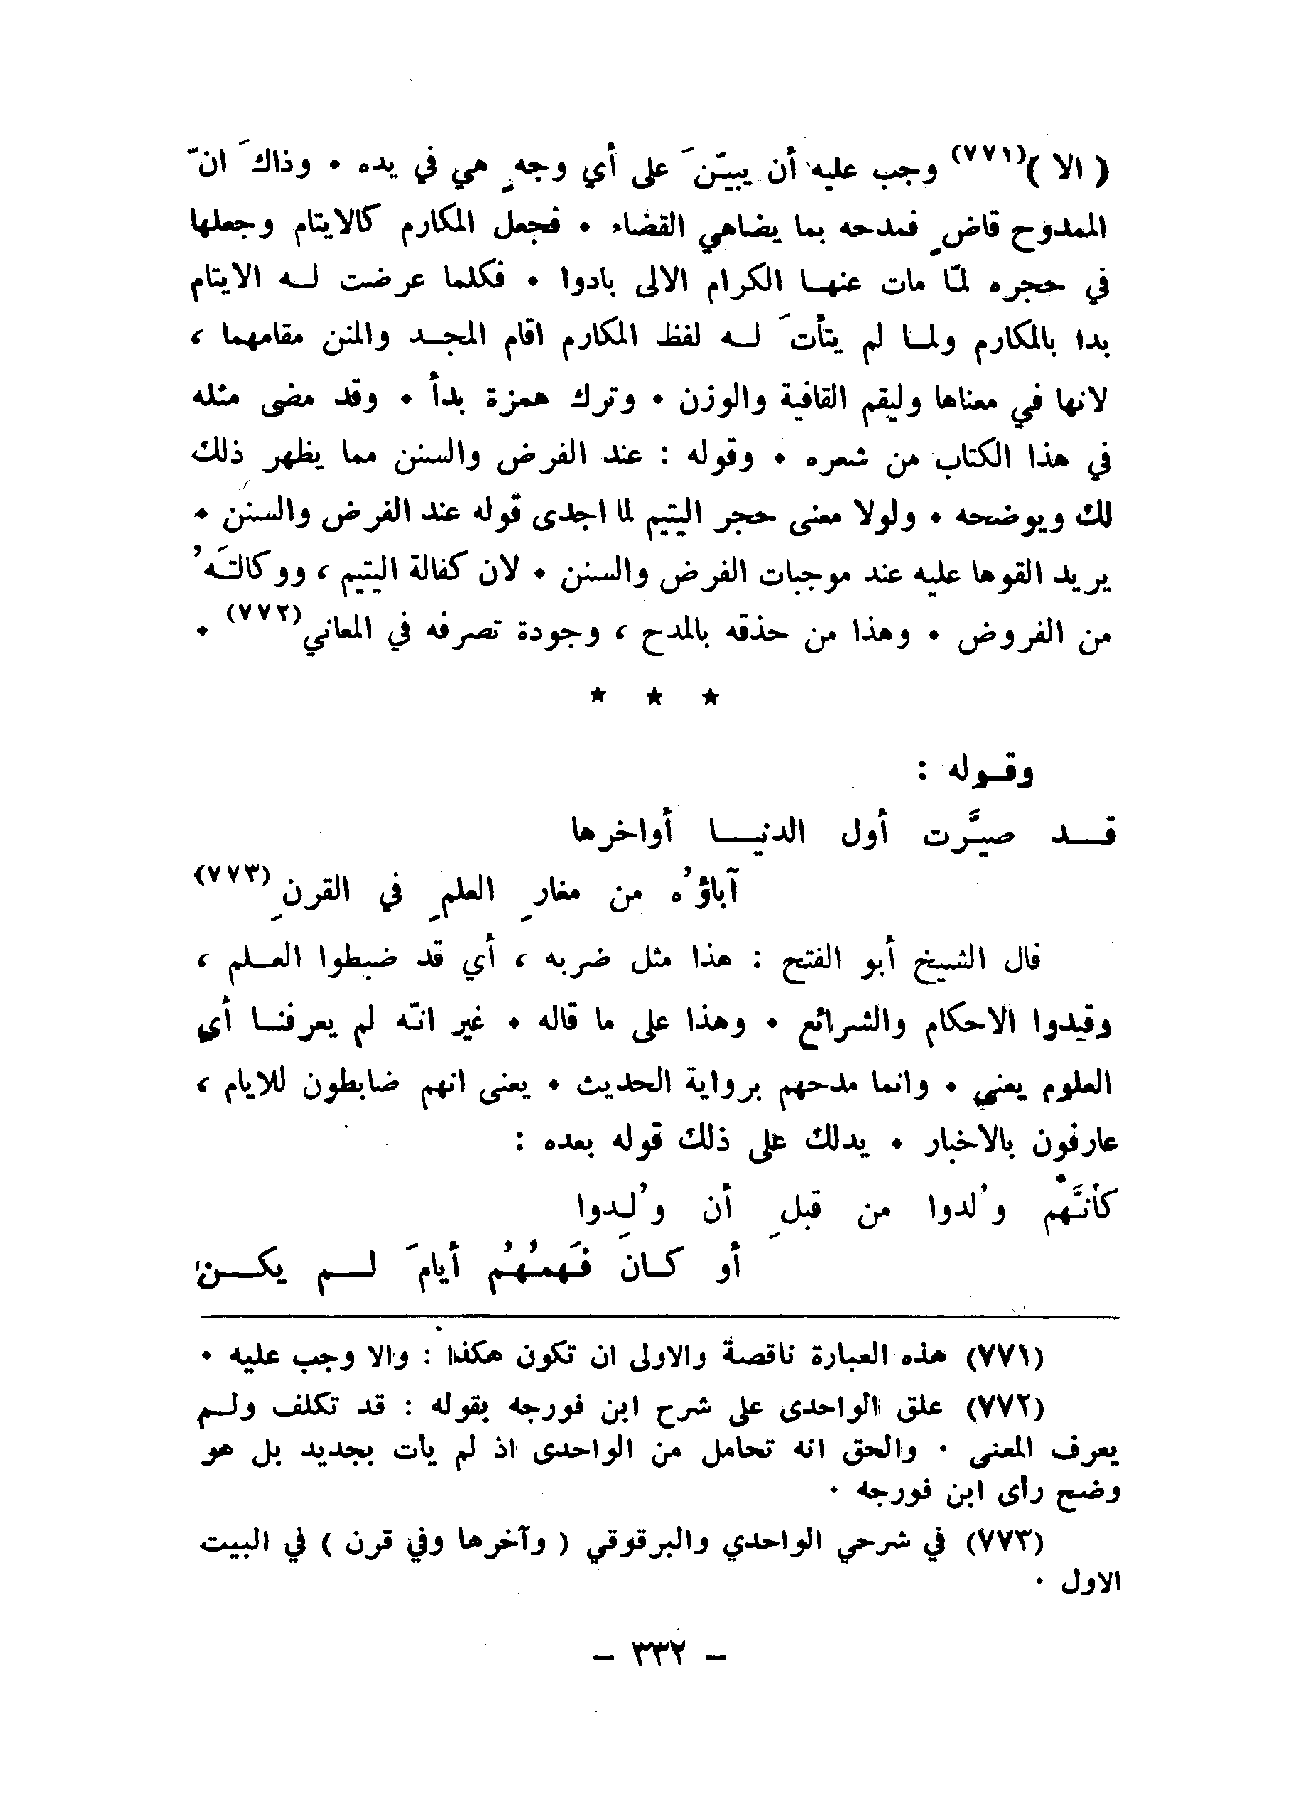 ( الا )(٧٧١) وجب عليه أن يبيّنَ على أي وجهٍ هي في يده • وذاكَ انّ
الممدوح قاضٍ فمدحه بما يضاهي القضاء • فجعل المكارم كالايتام وجعلها
في حجره لمّا مات عنها الكرام الالى بادوا • فكلما عرضت له الايتام
بدا بالمكارم ولما لم يتأتَ له لفظ المكارم اقام المجد والمنن مقامهما ،
لانها في معناها وليقم القافية والوزن • وترك همزة بدأ • وقد مضى مثله
في هذا الكتاب من شعره • وقوله : عند الفرض والسنن مما يظهر ذلك
لك ويوضحه • ولولا معنى حجر اليتيم لما اجدى قوله عند الفرض والسنن •
يريد القوها عليه عند موجبات الفرض والسنن • لان كفالة اليتيم ، ووكالتَهُ
من الفروض • وهذا من حذقه بالمدح ، وجودة تصرفه في المعاني(٧٧٢) •
★ ★ ★
وقوله :
قد صيَّرت أول الدنيا أواخرها
آباؤُه من مغارِ العلمِ في القرنِ(٧٧٣)
قال الشيخ أبو الفتح : هذا مثل ضربه ، أي قد ضبطوا العلم ،
وقيدوا الاحكام والشرائع • وهذا على ما قاله • غير انّه لم يعرفنا أي
العلوم يعني • وانما مدحهم برواية الحديث • يعنى انهم ضابطون للايام ،
عارفون بالاخبار • يدلك على ذلك قوله بعده :
كأنَّهمْ وُلدوا من قبلِ أن وُلِدوا
أو كان فَهمُهُم أيامَ لم يكن
(٧٧١) هذه العبارة ناقصة والاولى ان تكون هكذا : والا وجب عليه •
(٧٧٢) علق الواحدى على شرح ابن فورجه بقوله : قد تكلف ولم
يعرف المعنى • والحق انه تحامل من الواحدى اذ لم يات بجديد بل هو
وضح راى ابن فورجه •
(٧٧٣) في شرحي الواحدي والبرقوقي ( وآخرها وفي قرن ) في البيت
الاول •
– ٣٣٢ –